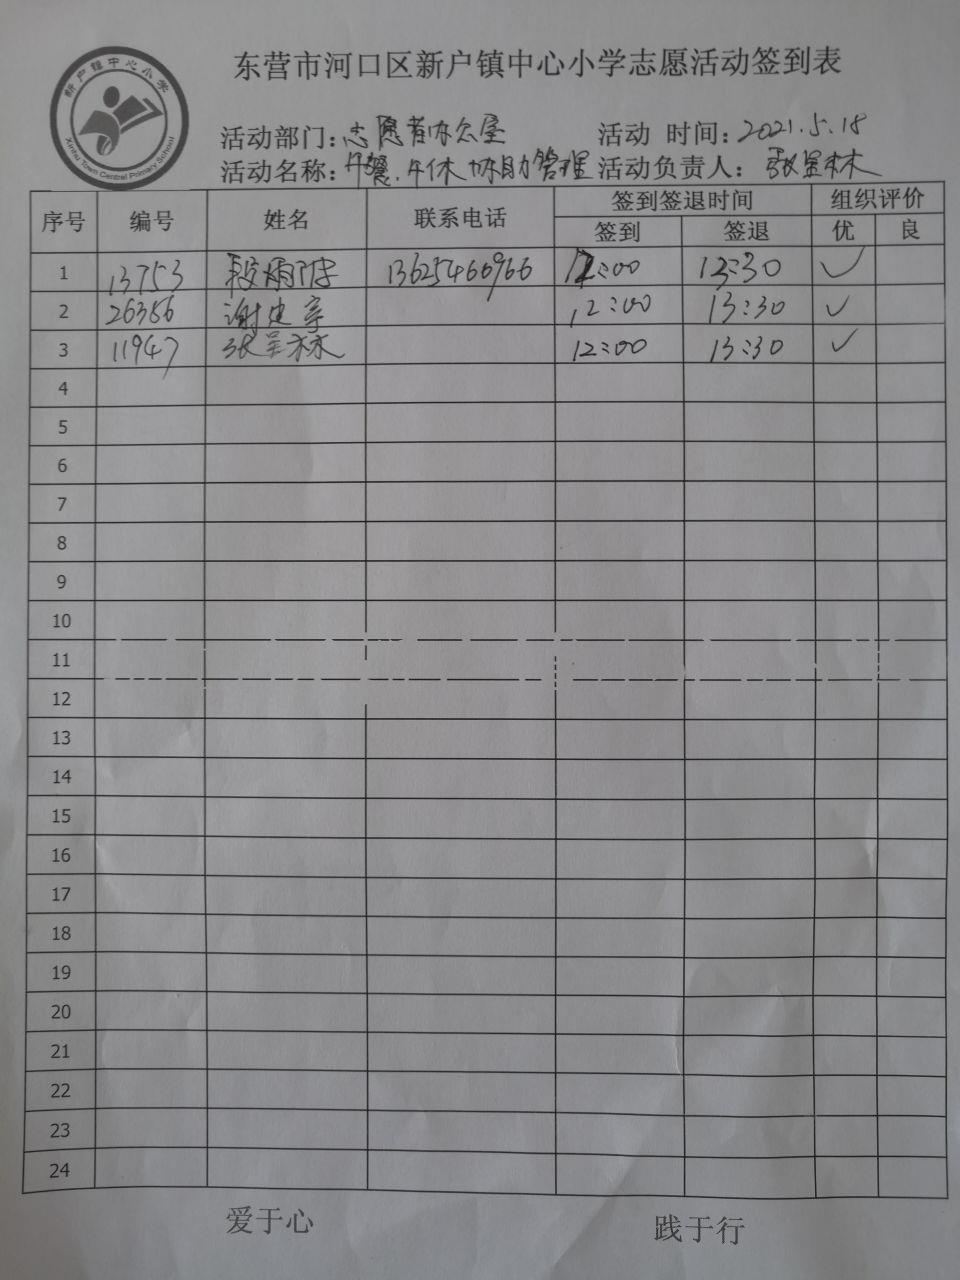 新户镇中心小学
Xinhu Town Central Primary School
东营市河口区新户镇中心小学志愿活动签到表
活动部门：志愿者办公室 活动 时间：2021.5.18
活动名称：午餐.午休协助管理 活动负责人：张昊林
序号 编号 姓名 联系电话 签到签退时间 组织评价
签到 签退 优 良
1 13753 段雨 13625466966 12:00 13:30 ✓
2 26356 谢建 12:00 13:30 ✓
3 11947 张昊林 12:00 13:30 ✓
4
5
6
7
8
9
10
11
12
13
14
15
16
17
18
19
20
21
22
23
24
爱于心 践于行